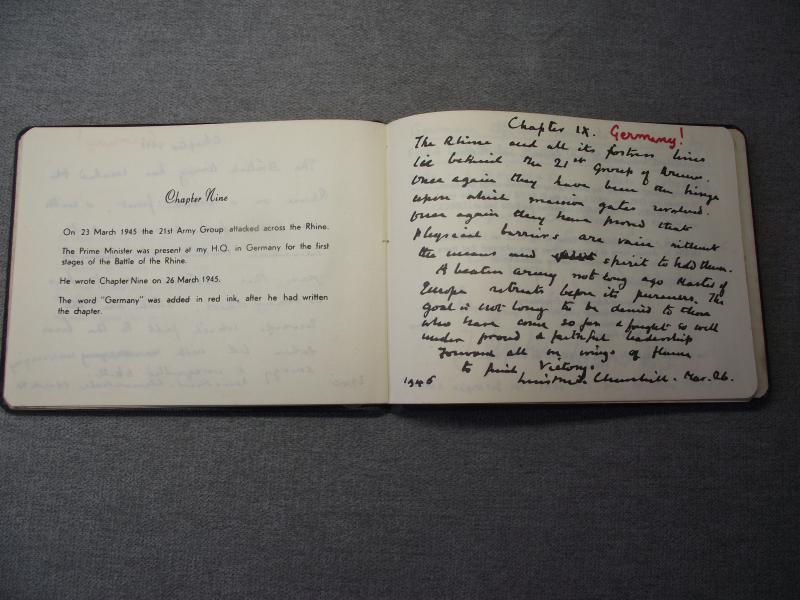 Chapter Nine
On 23 March 1945 the 21st Army Group attacked across the Rhine.
The Prime Minister was present at my H.Q. in Germany for the first
stages of the Battle of the Rhine.
He wrote Chapter Nine on 26 March 1945.
The word "Germany" was added in red ink, after he had written
the chapter.
Chapter IX. Germany!
The Rhine and all its fortress lines
lie behind the 21st Group of Armies.
Once again they have been the hinge
upon which massive gates revolved.
Once again they have proved that
physical barriers are vain without
the means and spirit to hold them.
A beaten army not long ago Master of
Europe retreats before its pursuers. The
goal is not long to be denied to those
who have come so far & fought so well
under proud & faithful leadership
Forward all on wings of flame
to final Victory.
Winston S. Churchill. Mar. 26.
1945